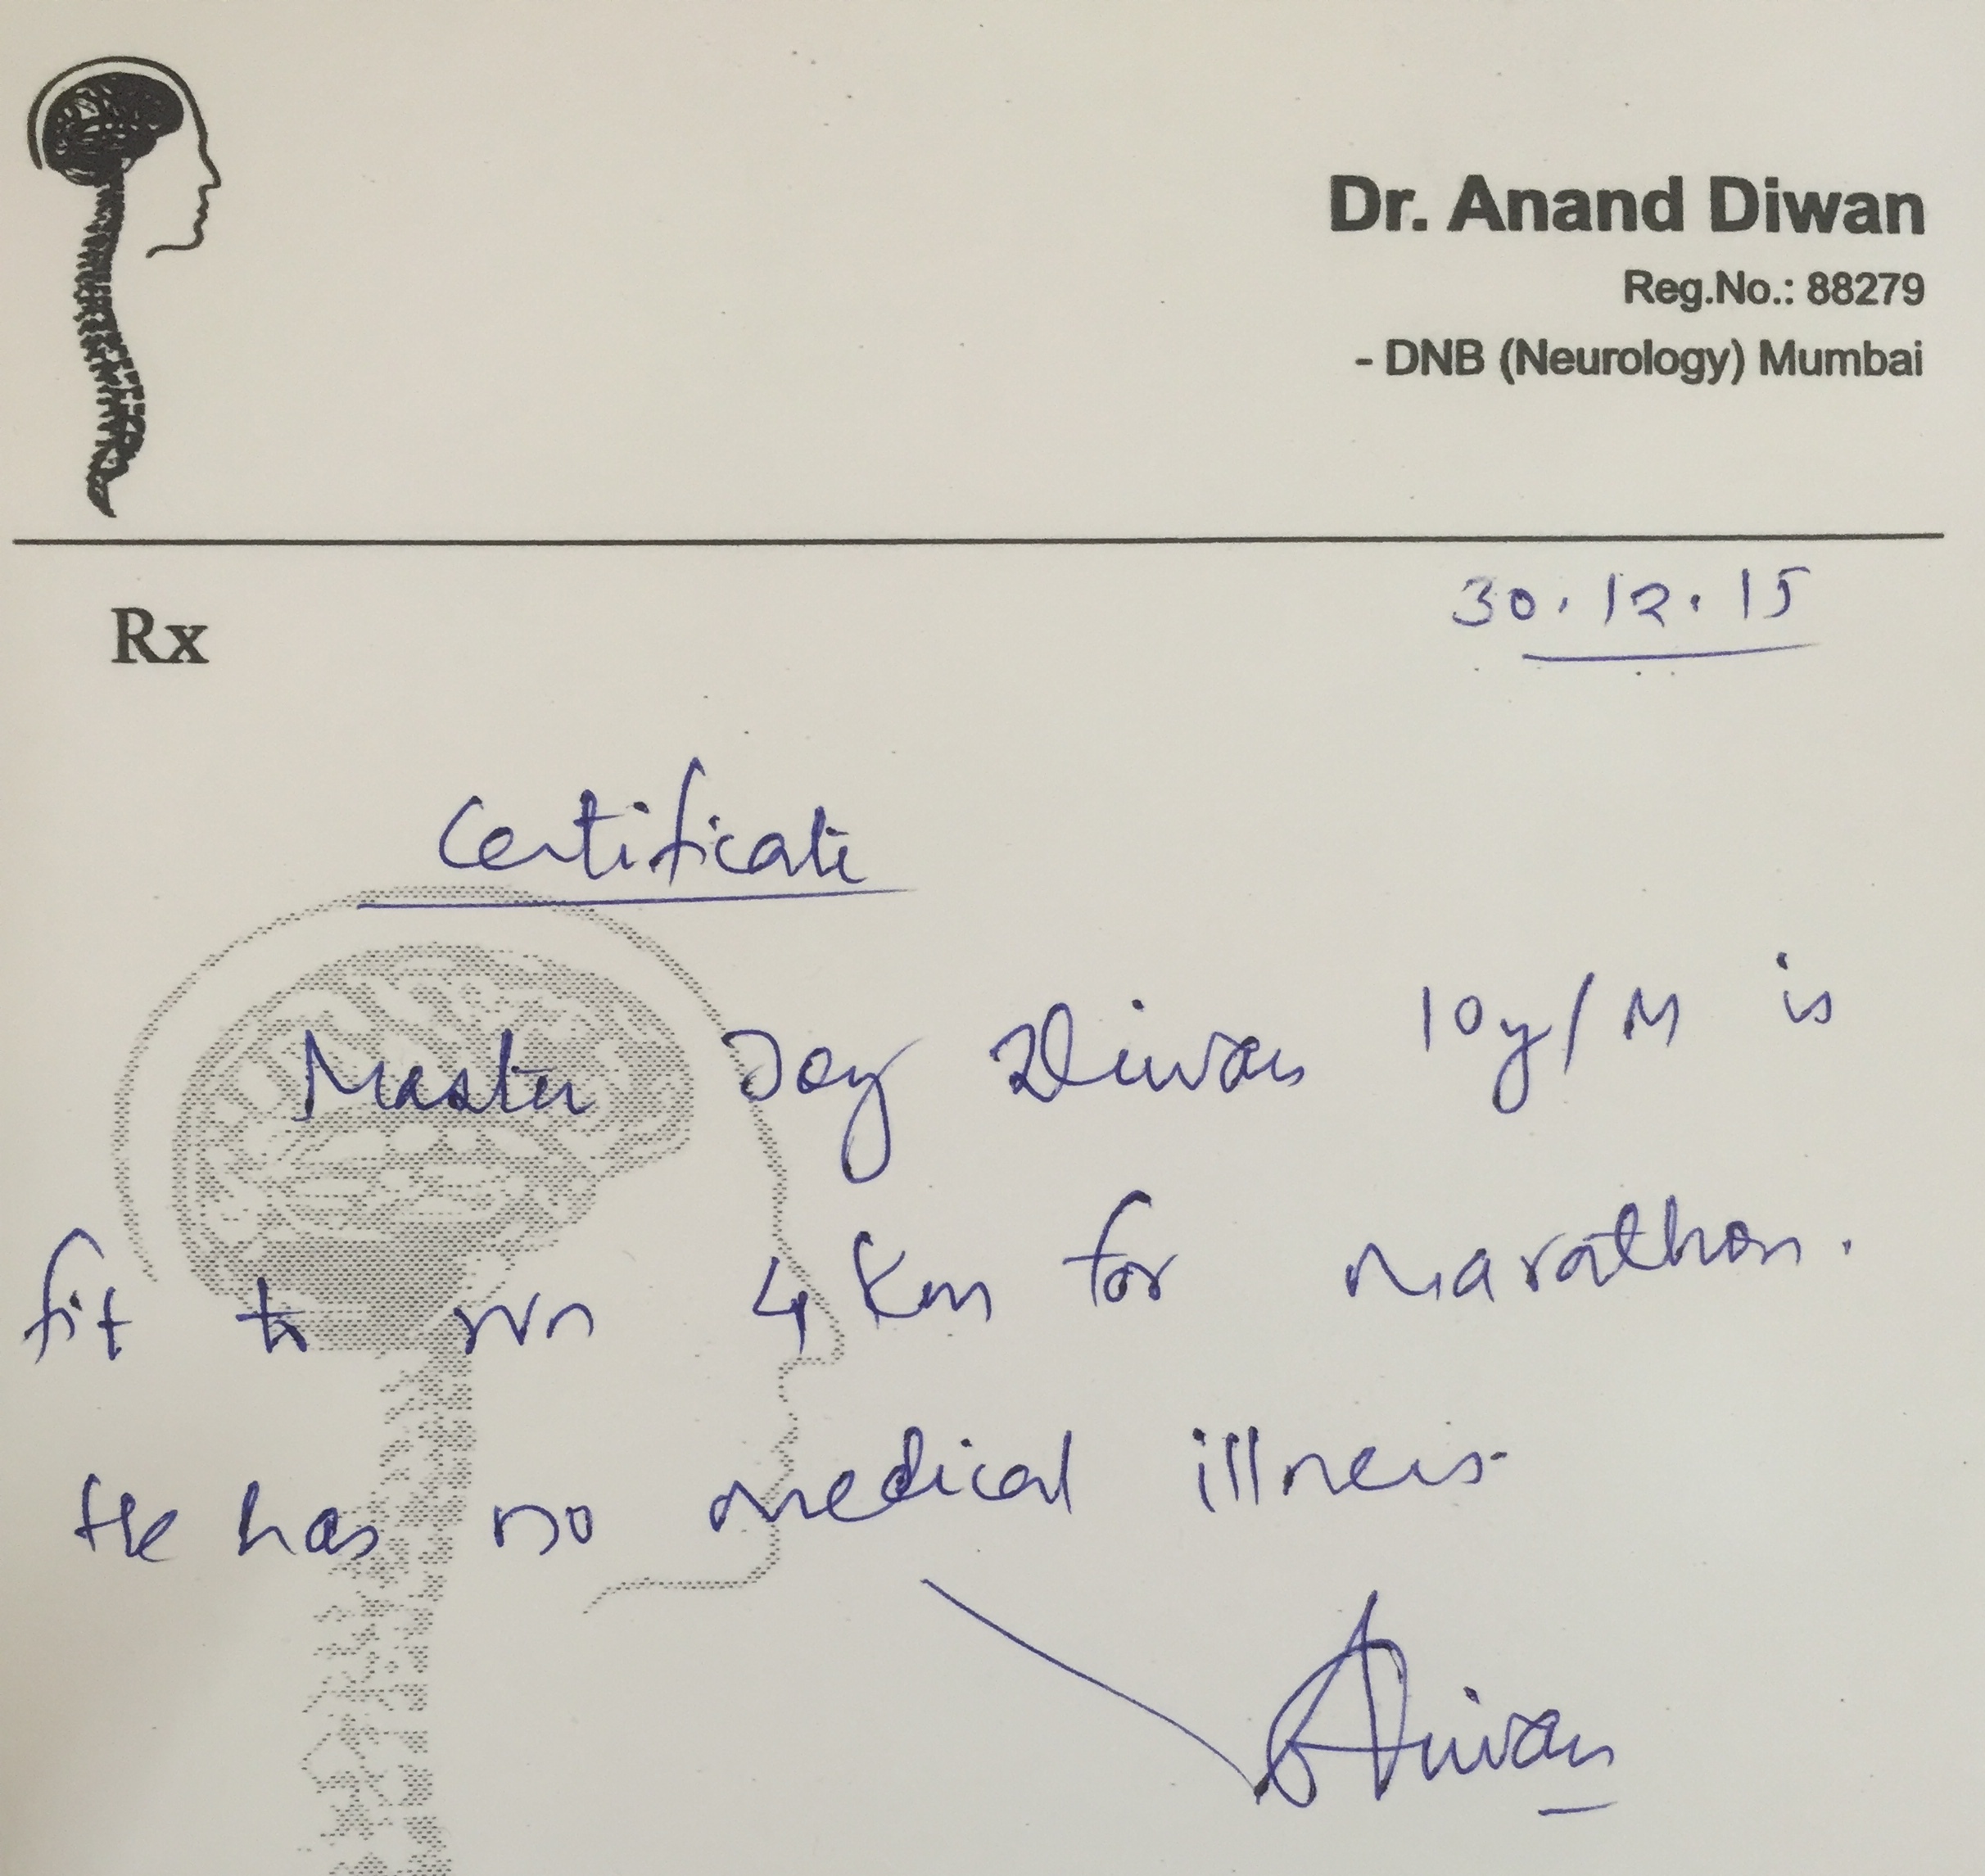 Dr. Anand Diwan
Reg.No.: 88279
- DNB (Neurology) Mumbai
30.12.15
Rx
Certificate
Master Joy Diwan 10y/M is
fit to run 4 Km for marathon.
He has no medical illness.
ADiwan